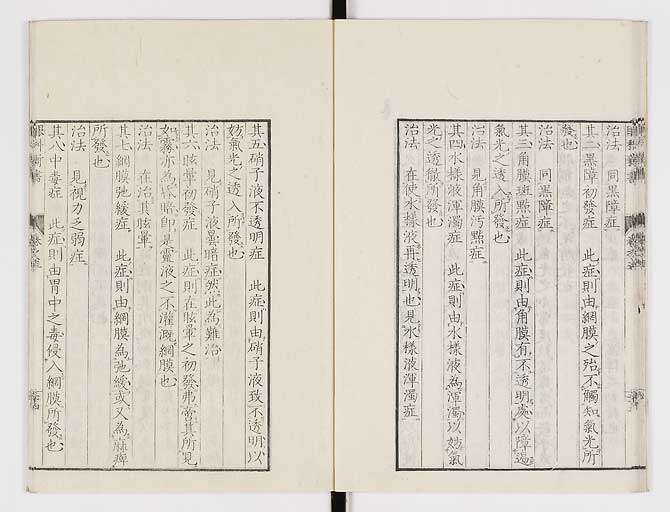 治法　同黒障症
其二黒障初發症　此症則由網膜之殆不觸知氣光所
發也
治法　同黒障症
其三角膜斑點症　此症則由角膜有不透明處以障遏
氣光之透入所發也
治法　見角膜汚點症
其四水樣液渾濁症　此症則由水樣液為渾濁以妨氣
光之透徹所發也
治法　在使水樣液再透明也見水樣液渾濁症
其五硝子液不透明症　此症則由硝子液致不透明以
妨氣光之透入所發也
治法　見硝子液雲暗症然此為難治
其六眩暈初發症　此症則在眩暈之初發弗啻其所見
如霧亦為昏暗即是靈液之不灌溉綱膜也
治法　在治其眩暈
其七綱膜弛緩症　此症則由綱膜為弛緩或又為麻痺
所發也
治法　見視力之弱症
其八中毒症　此症則由胃中之毒侵入綱膜所發也
眼科新書